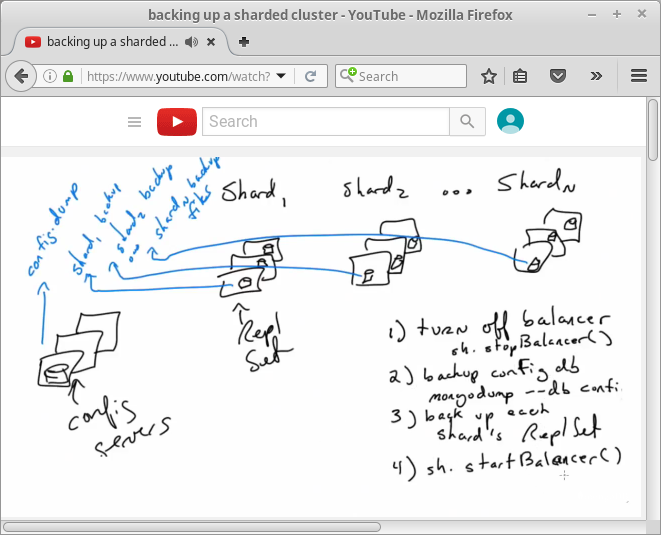 backing up a sharded cluster - YouTube - Mozilla Firefox
backing up a sharded ...
https://www.youtube.com/watch?
Search
Search
config.dump
shard1 backup
shard2 backup
...
shardN backup
files
Shard1
shard2
...
ShardN
Repl
Set
config
servers
1) turn off balancer
sh.stopBalancer()
2) backup config db
mongodump --db confi
3) back up each
shard's Repl Set
4) sh.startBalancer()